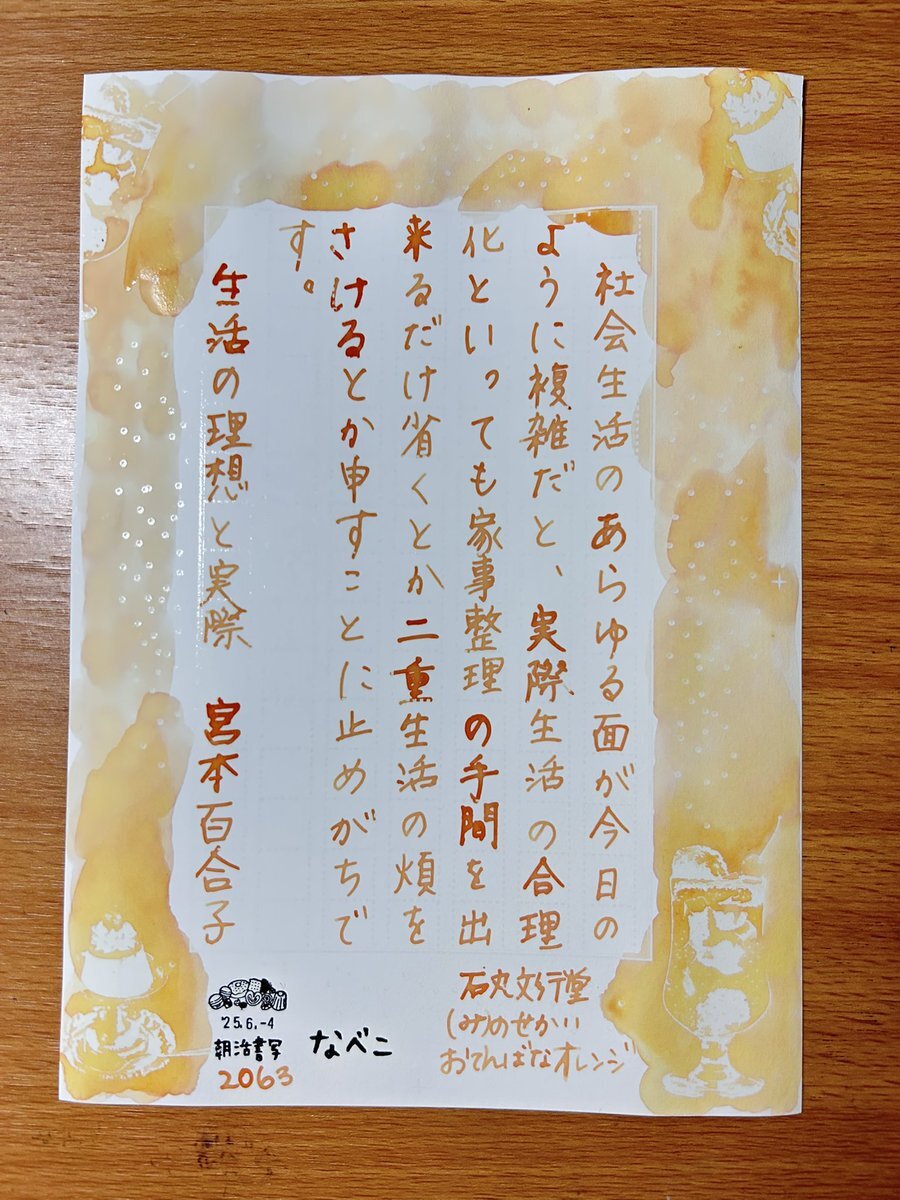 社会生活のあらゆる面が今日の
ように複雑だと、実際生活の合理
化といっても家事整理の手間を出
来るだけ省くとか二重生活の煩を
さけるとか申すことに止めがちで
す。
生活の理想と実際 宮本百合子
石丸文行堂
(み)のせかい
おてんばなオレンジ
なべこ
'25.6.-4
朝活書写
2063